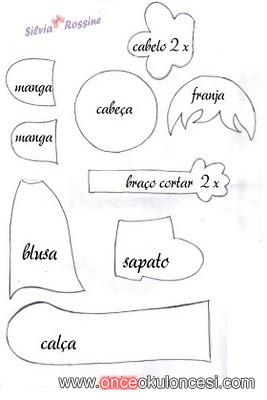 Silvia Rossine
cabelo 2 x
manga
cabeça
franja
manga
braço cortar 2 x
blusa
sapato
calça
www.onceokuloncesi.com